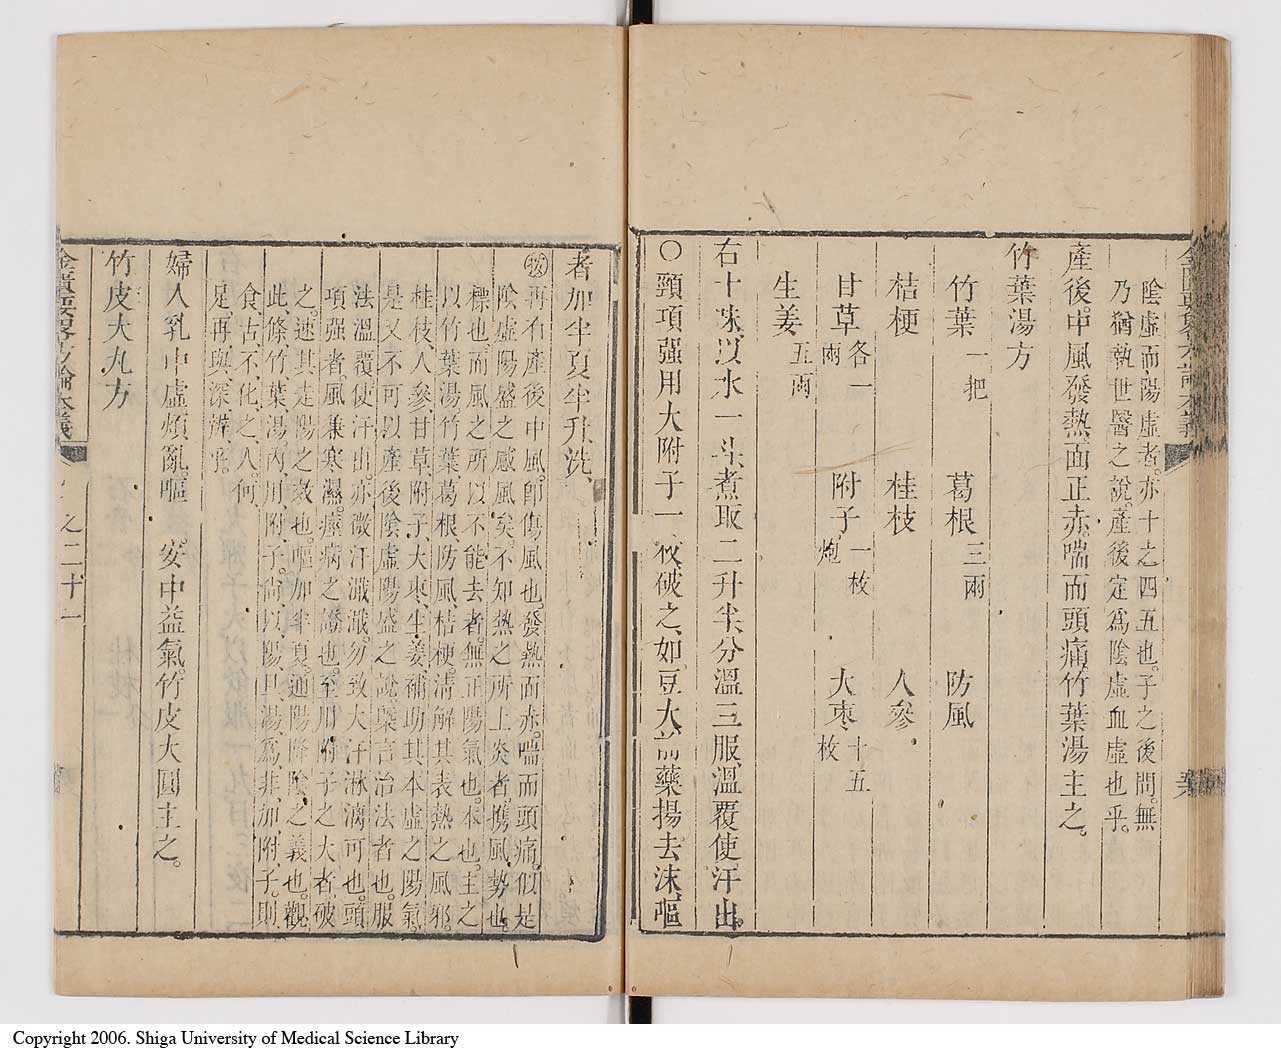 陰虛而陽虛者亦十之四五也。子之後問。無
乃猶執世醫之說。產後定爲陰虛血虛也乎。
產後。中風發熱。面正赤。喘而頭痛。竹葉湯主之。
竹葉湯方
竹葉一把 葛根三兩 防風
桔梗 桂枝 人參
甘草各一兩 附子一枚炮 大棗十五枚
生姜五兩
右十味、以水一斗、煮取二升半、分溫三服、溫覆使汗出。
〇頸項强用大附子一枚、破之、如豆大、前藥揚去沫、嘔
者加半夏半升洗、
再有產後中風。卽傷風也。發熱面赤。喘而頭痛。似是
陰虛陽盛之感風矣。不知熱之所上炎者。攜風勢也。
標也。而風之所以不能去者。無正陽氣也。本也。主之
以竹葉湯。竹葉、葛根、防風、桔梗。淸解其表熱之風邪。
桂枝、人參、甘草、附子、大棗、生姜、補助其本虛之陽氣。
是又不可以產後陰虛陽盛之說。槩言治法者也。服
法溫覆使汗出。亦微汗濈濈。勿致大汗淋漓可也。頭
項强者。風兼寒濕。痙病之證也。至用附子之大者、破
之。速其走陽之效也。嘔加半夏。通陽降陰之義也。觀
此、條竹葉湯內、用、附、子。尙、以、陽、旦、湯、爲、非、加、附、子。則、
食、古、不、化、之、人、何、
足、再、與、深、辨、乎。
婦人乳中虛。煩亂。嘔 。安中益氣竹皮大圓主之。
竹皮大丸方
金匱要畧方論本義
之二十一
Copyright 2006. Shiga University of Medical Science Library